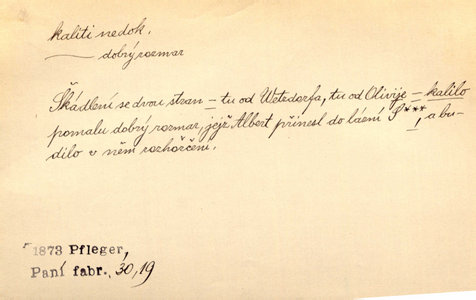 kaliti nedok.
—— dobrý rozmar
Škádlení se dvou stran – tu od Wetzdorfa, tu od Olivije – kalilo
pomalu dobrý rozmar, jejž Albert přinesl do lázní S***, a bu-
dilo v něm rozhořčení.
1873 Pfleger,
Paní fabr. 30,19